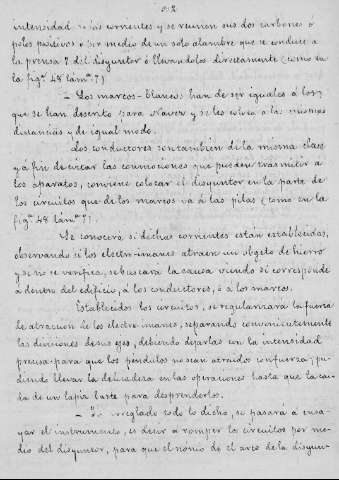 intensidad las corrientes y se reunen sus dos carbones ó
polos positivos por medio de un solo alambre que se conduce a
la prensa 7 del disyuntor ó llevandolos directamente (como en
la fig.ª 48 lám.ª 7)
— Los marcos-blancos han de ser iguales á los q.
que se han descrito para Navez y se les coloca a las mismas
distancias y de igual modo.
Los conductores son tambien de la misma clase
y á fin de evitar las conmociones que pueden trasmitir a
los aparatos, conviene colocar el disyuntor en la parte de
los circuitos que de los marcos va á las pilas (como en la
fig.ª 48 lám.ª 7).
Se conocerá si dichas corrientes están establecidas,
observando si los electro-imanes atraen un objeto de hierro
y si no se verifica, se buscara la causa viendo si corresponde
a dentro del edificio, á los conductores, ó a los marcos.
Establecidos los circuitos, se regularizará la fuerza
de atraccion de los electro-imanes, separando convenientemente
las divisiones de sus ejes, debiendo dejarlas con la intensidad
precisa para que los péndulos no sean atraidos con fuerza, pu-
diendo llevar la delicadeza en las operaciones hasta que la cai-
da de un lapiz baste para desprenderlos.
— arreglado todo lo dicho, se pasará a ensa-
yar el instrumento, es decir a romper los circuitos por me-
dio del disyuntor, para que el nonio de el arco de la disyun-